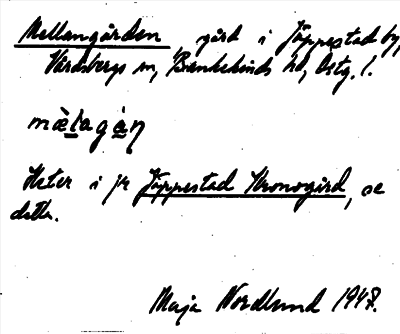 Mellangården gård i Jäppestad by,
Vårdsbergs sn, Bankekinds hd, Östg. l.
mæ̀lagån
Heter i jr Jäppestad Kronogård, se
detta.
Maja Nordlund 1948.